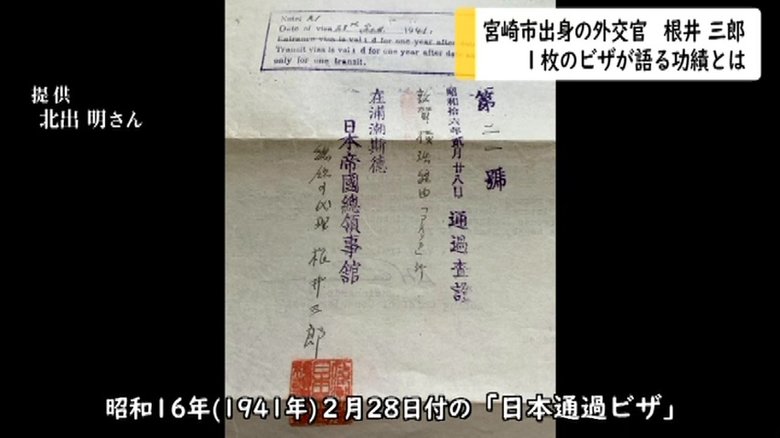 宮崎市出身の外交官 根井 三郎
1枚のビザが語る功績とは
提供
北出 明さん
Date of visa
1941.
Entrance visa is valid for one year after
Transit visa is valid for one year after
only for one transit.
第二一號
昭和拾六年貳月廿八日 通過査證
敦賀橫濱経由
在浦潮斯德
日本帝國總領事館
総領事代理 根井三郎
昭和16年(1941年)2月28日付の「日本通過ビザ」